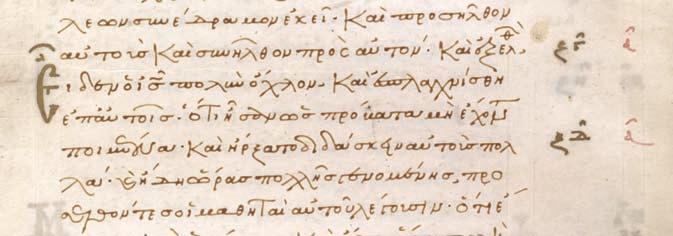 λεων συνέδραμον ἐκεῖ· Καὶ προσῆλθον
αὐτοῖς Καὶ συνῆλθον πρὸς αὐτόν· Καὶ ἐξελθ ξγ α
ἰδεν ὁ ις πολὺν ὄχλον· Καὶ ἐσπλαγχνίσθη
ἐπ αὐτοῖς· ὅτι ἦσαν ὡς πρόβατα μὴ ἔχοντ ξδ α
ποιμένα· Καὶ ἤρξατο διδάσκειν αὐτοὺς πολ
λά· Καὶ ἤδη ὥρας πολλῆς γενομένης, προ
σελθόντες οἱ μαθηταὶ αὐτοῦ λέγουσιν· ὅτι ἔ